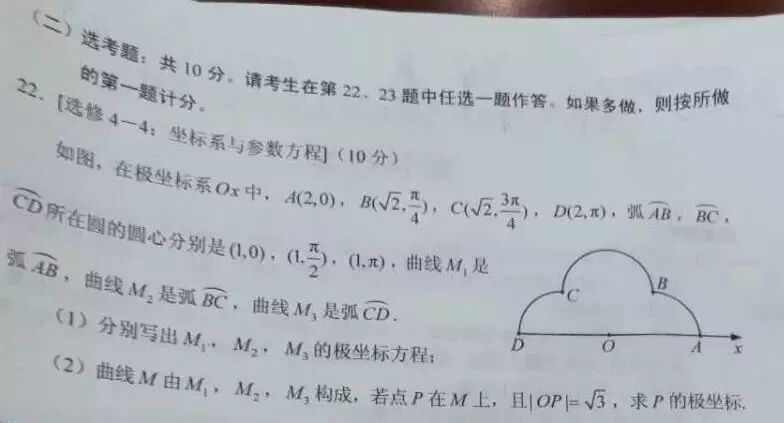 （二）选考题：共 10 分。请考生在第 22、23 题中任选一题作答。如果多做，则按所做
的第一题计分。
22．[选修 4—4：坐标系与参数方程]（10 分）
如图，在极坐标系 Ox 中，A(2,0)，B(√2,π/4)，C(√2,3π/4)，D(2,π)，弧 A͡B，B͡C，
C͡D 所在圆的圆心分别是 (1,0)，(1,π/2)，(1,π)，曲线 M₁ 是
弧 A͡B，曲线 M₂ 是弧 B͡C，曲线 M₃ 是弧 C͡D．
（1）分别写出 M₁，M₂，M₃ 的极坐标方程；
（2）曲线 M 由 M₁，M₂，M₃ 构成，若点 P 在 M 上，且|OP|=√3，求 P 的极坐标.
C
B
D
O
A
x